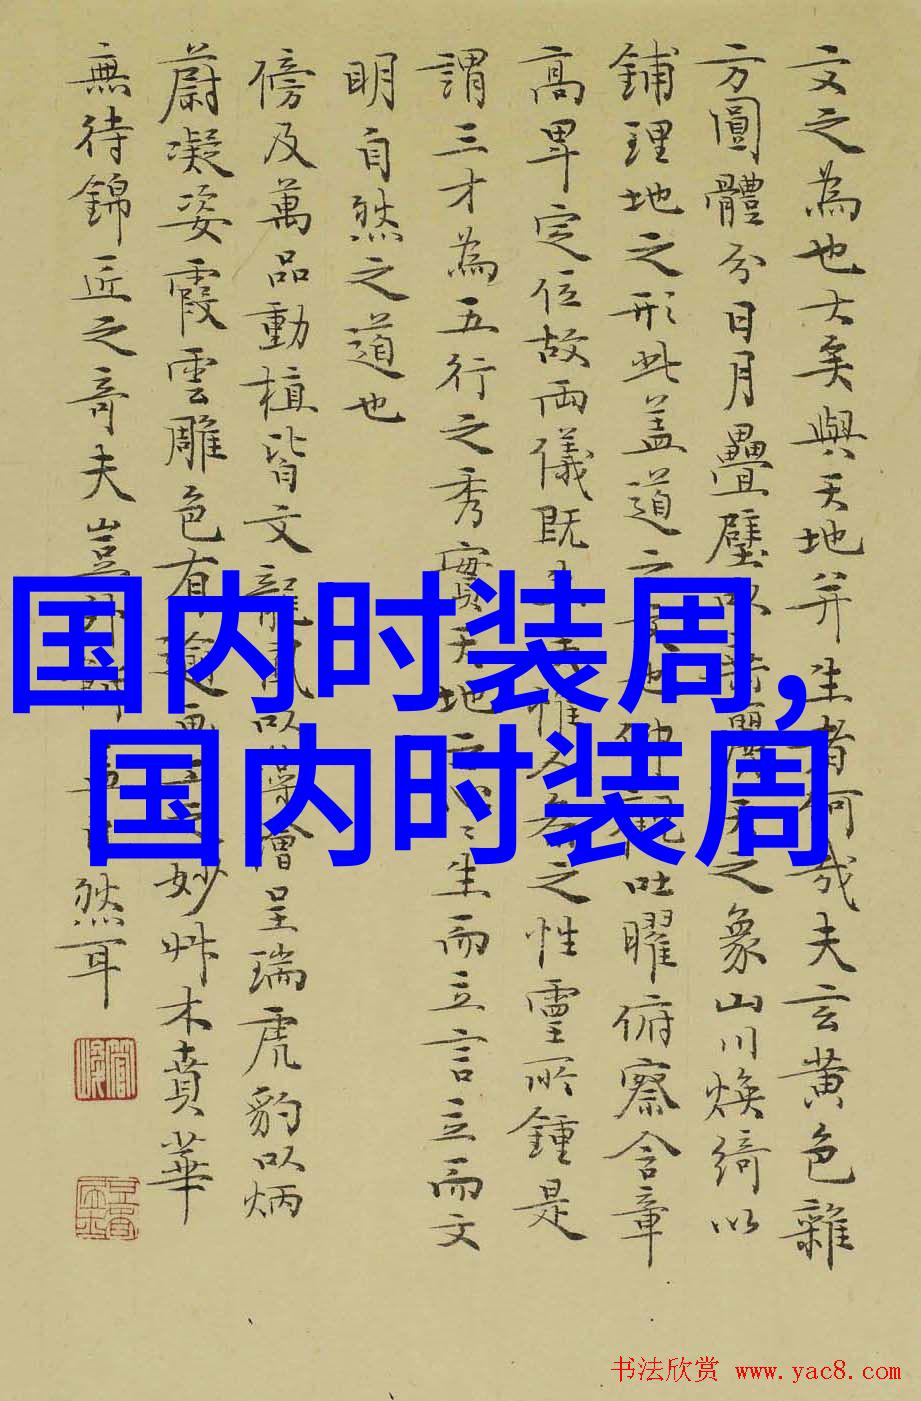 文之為也大矣與天地并生者何哉夫玄黄色雜
方圓體分日月疊璧以麗天之象山川煥綺以
鋪理地之形此盖道之也仰觀吐曜俯察含章
高卑定位故兩儀既惟人之性靈所鍾是
謂三才為五行之秀實天地之心〻生而立言立而文
明自然之道也
傍及萬品動植皆文龍鳳以藻繪呈瑞虎豹以炳
蔚凝姿霞雲雕色有踰妙艸木賁華
無待錦匠之奇夫豈外然耳
国内时装周,
国内时装周
书法欣赏 www.yac8.com